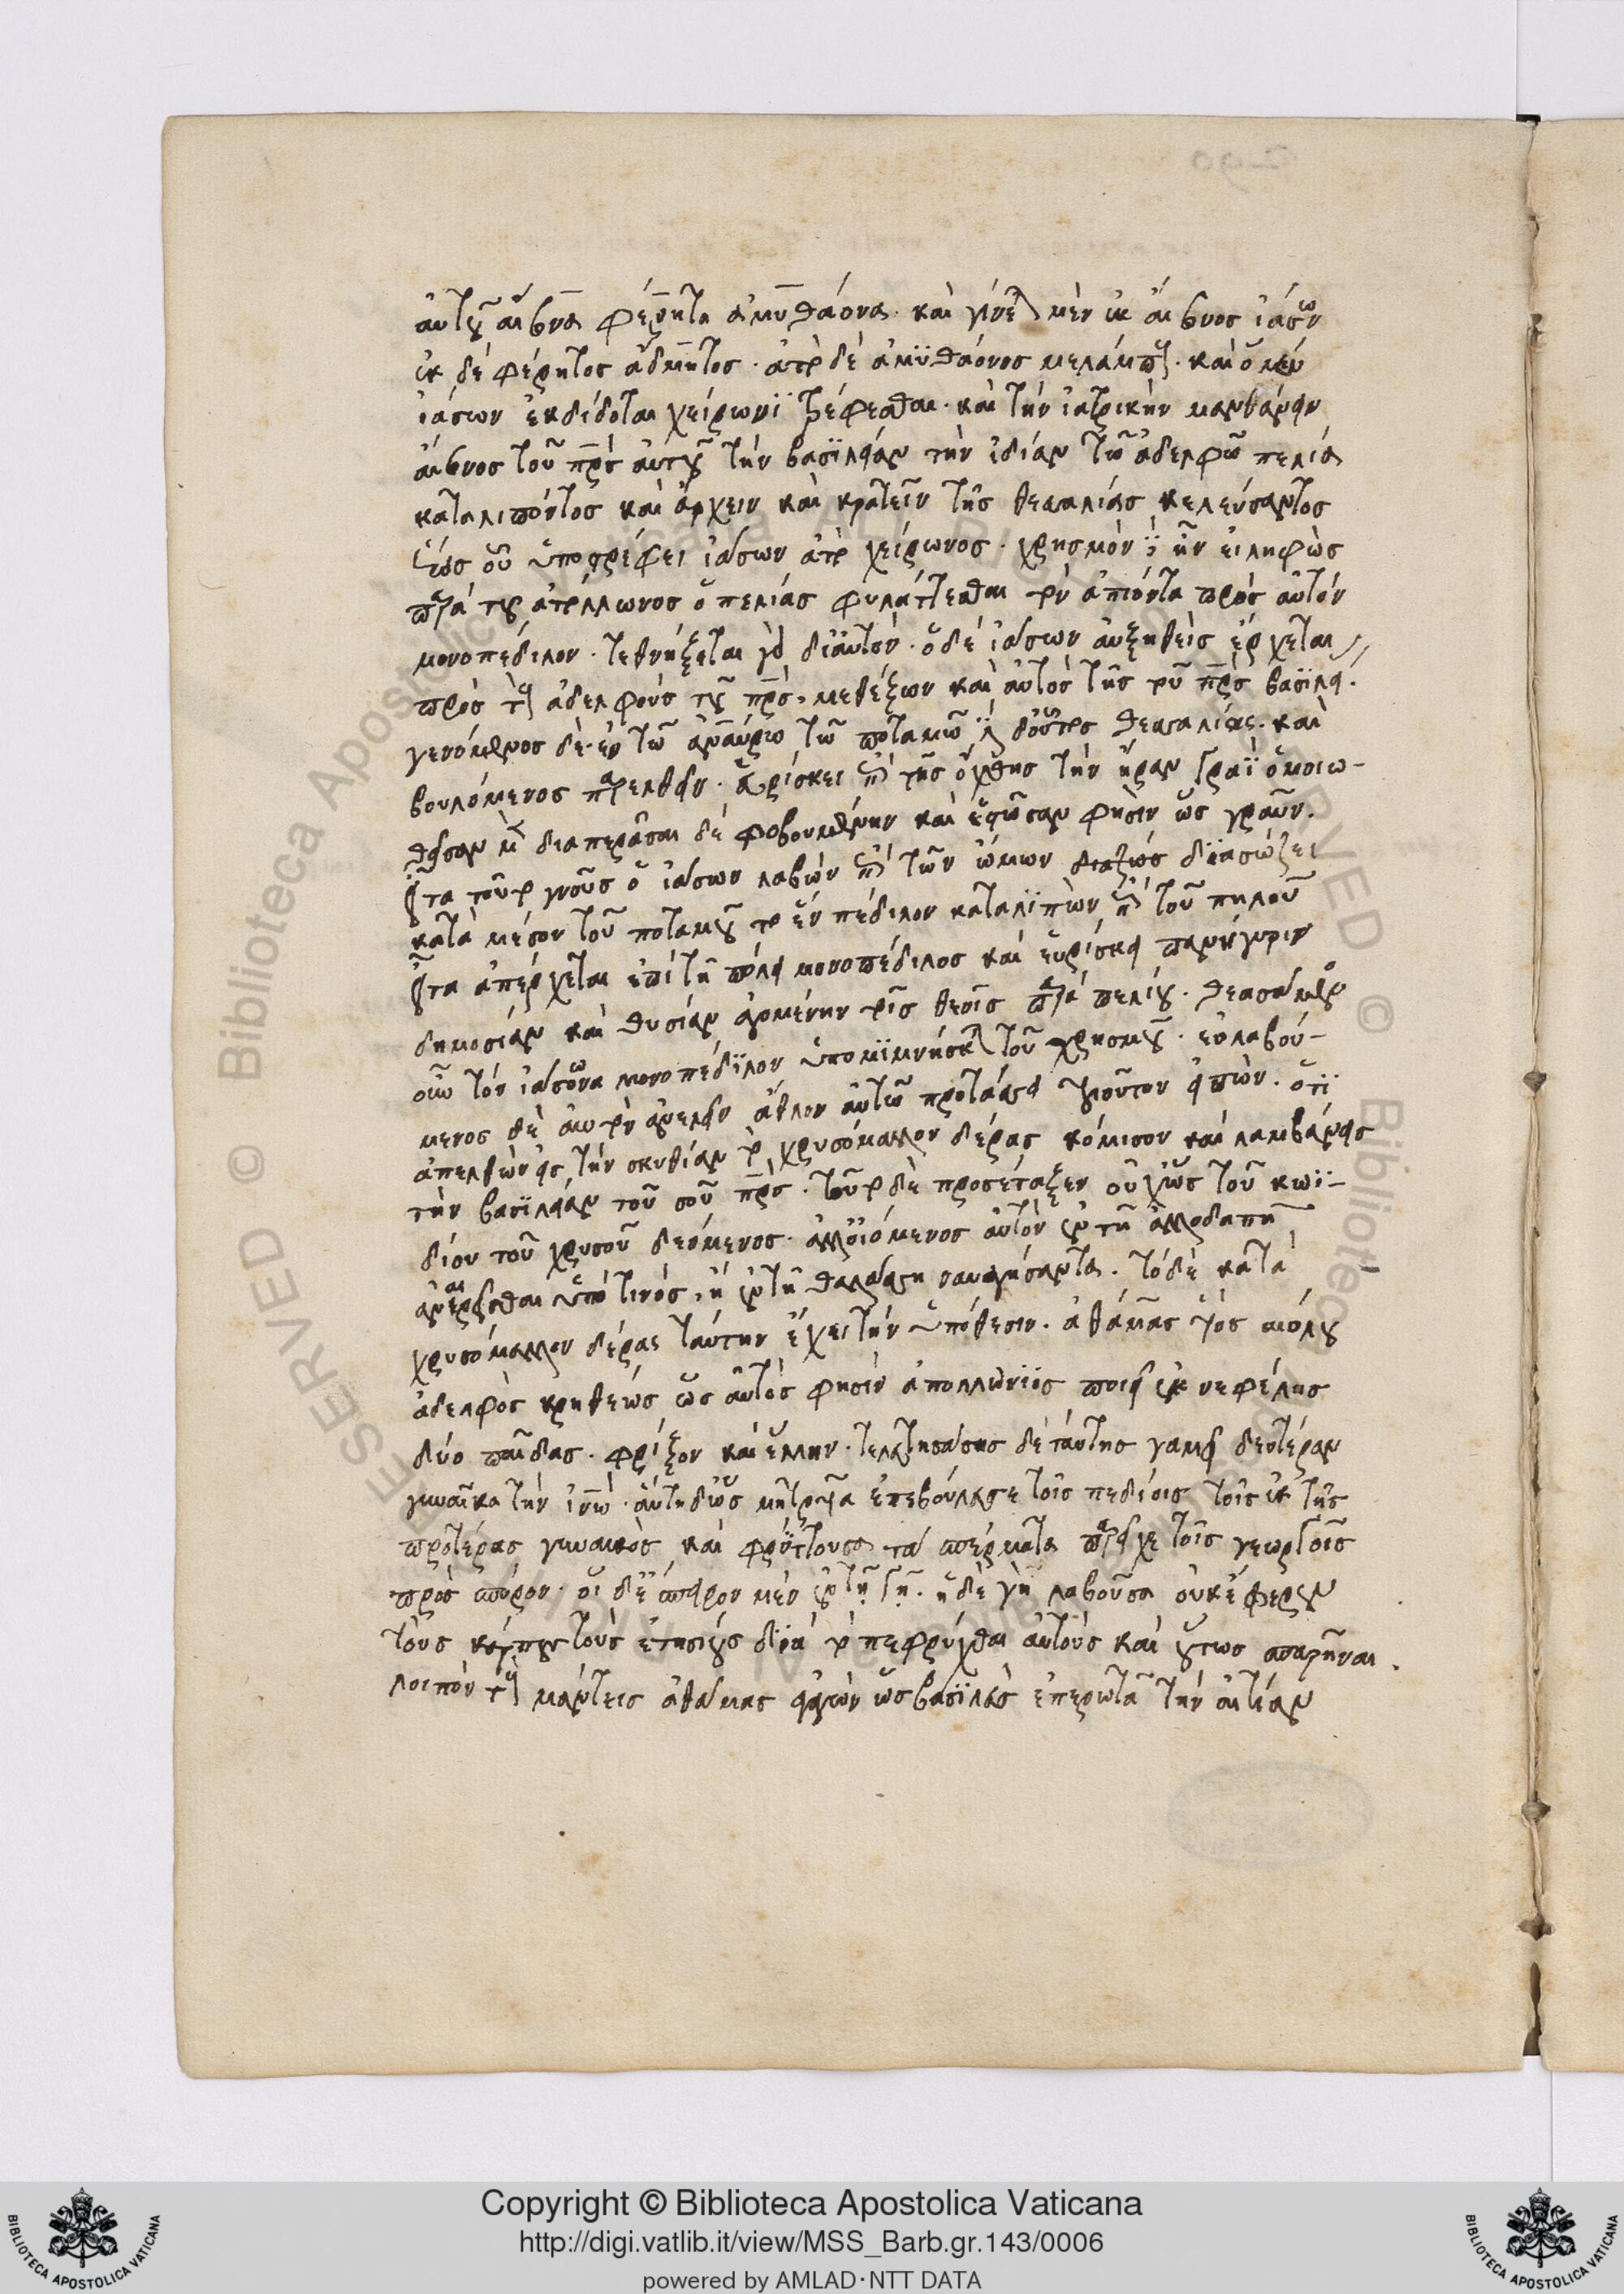 αὐτοῦ αἴσονα φέρητα ἀμυθάονα. καὶ γίνεται μὲν ἐκ αἴσονος ἰάσων
ἐκ δὲ φέρητος ἄδμητος. ἀπὸ δὲ ἀμϋθάονος μελάμπους. καὶ ὁ μὲν
ἰάσων ἐκδίδοται χείρωνϊ τρέφεσθαι. καὶ τὴν ἰατρικὴν μανθάνειν
αἴσονος τοῦ πρς αὐτοῦ τὴν βασϊλείαν τὴν ἰδίαν τῶ ἀδελφῶ πελία
καταλιπόντος καὶ ἄρχειν καὶ κρατεῖν τῆς θεσσαλίας κελεύσαντος
ἕως οὗ ὑποστρέφει ἰάσων ἀπὸ χείρωνος. χρησμὸν ἦν εἰληφὼς
παρὰ τοῦ ἀπόλλωνος ὁ πελίας φυλάττεσθαι τὸν ἀπιόντα πρὸς αὐτὸν
μονοπέδιλον. τεθνήξεται γὰρ δϊαυτόν. ὁ δὲ ἰάσων αὐξηθεὶς ἔρχεται
πρὸς τοὺς ἀδελφοὺς τοῦ πρς, μεθέξων καὶ αὐτὸς τῆς τοῦ πρς βασϊλεί.
γενόμενος δὲ ἐν τῶ ἀναύρω τῶ ποταμῶ θεσσαλίας. καὶ
βουλόμενος παρελθεῖν. εὑρίσκει ἐπὶ τῆς ὄχθης τὴν ἥραν γραῒ ὁμοιω-
θεῖσαν διαπερᾶσαι δὲ φοβουμένην καὶ φησὶν ὡς γραῦν.
εἶτα τοῦτο γνοὺς ὁ ἰάσων λαβὼν ἐπὶ τῶν ὤμων διασώζει
κατὰ μέσον τοῦ ποταμοῦ τὸ ἓν πέδιλον καταλϊπὼν ἐπὶ τοῦ πηλοῦ
εἶτα ἀπέρχεται ἐπὶ τῆ πόλει μονοπέδιλος καὶ εὑρίσκει πανήγυριν
δημοσίαν καὶ θυσίαν ἀρμένην τοῖς θεοῖς παρὰ πελίου. θεασάμενος
οὖν τὸν ἰάσωνα μονοπέδϊλον ὑπομϊμνήσκεται τοῦ χρησμοῦ. εὐλαβού-
μενος δὲ αὐτὸν ἀνελεῖν ἆθλον αὐτῶ προτάσσει τοιοῦτον εἰπών. ὅτϊ
ἀπελθὼν εἰς τὴν σκυθίαν τὸ χρυσόμαλλον δέρας κόμισον καὶ λαμβάνεις
τὴν βασϊλείαν τοῦ σοῦ πρς. τοῦτο δὲ προσέταξεν οὐχ ὡς τοῦ κωϊ-
δίου τοῦ χρυσοῦ δεόμενος. ἀλλ οἰόμενος αὐτὸν ἐν τῆ ἀλλοδαπῆ
ἀναιρεῖσθαι ὑπό τινος, ἢ ἐν τῆ θαλάσση ναυαγήσαντα. τὸ δὲ κατὰ
χρυσόμαλλον δέρας ταύτην ἔχει τὴν ὑπόθεσιν. ἀθάμας υἱὸς αἰόλου
ἀδελφὸς κρηθέως ὡς αὐτὸς φησὶν ἀπολλώνϊος ποιεῖ ἐκ νεφέλης
δύο παῖδας. φρίξον καὶ ἕλλην. τελευτησάσης δὲ ταύτης γαμεῖ δευτέραν
γυναῖκα τὴν ἰνώ. αὕτη δ ὡς μητρυϊὰ ἐπεβούλευσε τοῖς πεδίοις τοῖς ἐκ τῆς
προτέρας γυναικὸς καὶ φρύττουσα τὰ σπέρματα παρεῖχε τοῖς γεωργοῖς
πρὸς σπόρον. οἱ δὲ ἔσπειρον μὲν ἐν τῆ γῆ. ἡ δὲ γῆ λαβοῦσα οὐκ ἔφερεν
τοὺς καρποὺς τοὺς ἐτησίους δϊὰ τὸ πεφρύχθαι αὐτοὺς καὶ οὕτως σπαρῆναι.
λοιπὸν τοὺς μάντεις ἀθάμας ὡς βασϊλεὺς ἐπερωτᾶ τὴν αἰτίαν
Copyright © Biblioteca Apostolica Vaticana
http://digi.vatlib.it/view/MSS_Barb.gr.143/0006
powered by AMLAD·NTT DATA